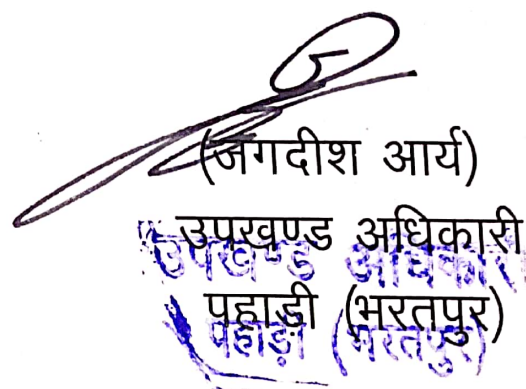 (जगदीश आर्य)
उपखण्ड अधिकारी
पहाड़ी (भरतपुर)
उपखण्ड अधिकारी
पहाड़ी (भरतपुर)